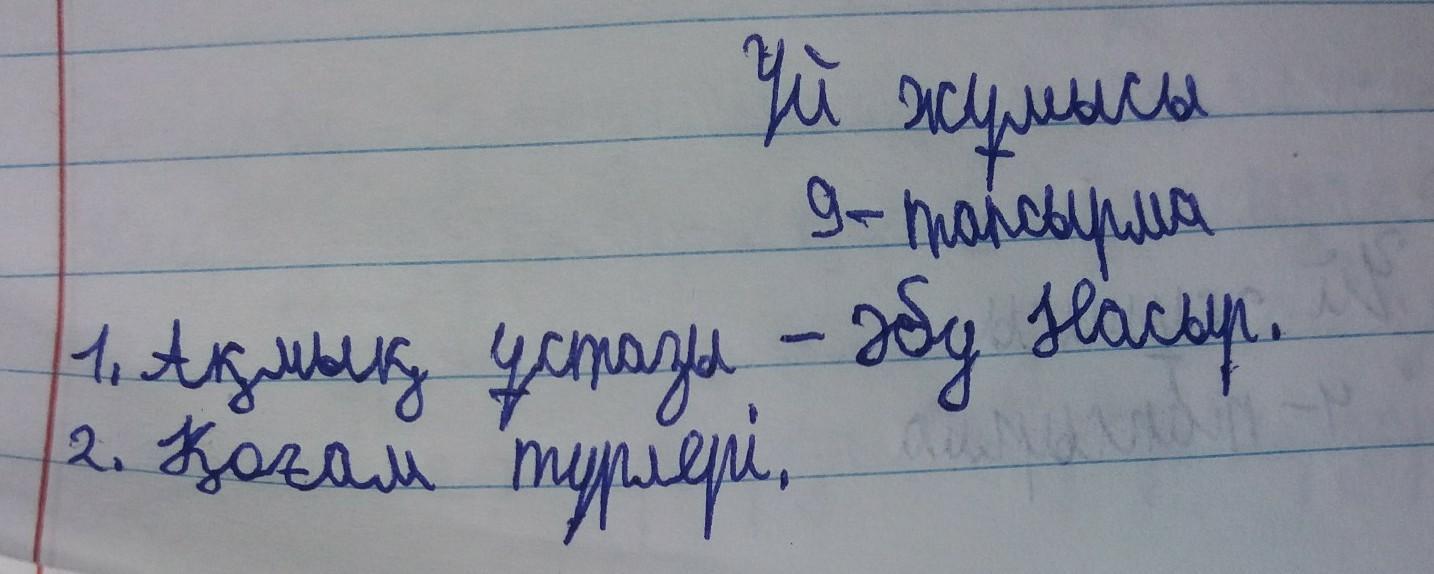 Үй жұмысы
9-тапсырма
1. Ақмық ұстазы – Әбу Насыр.
2. Қоғам түрлері.